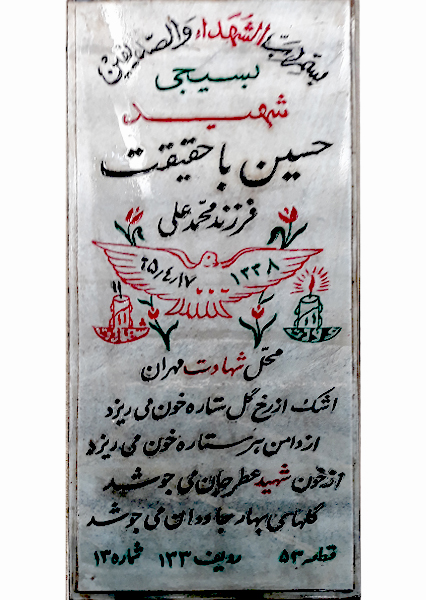 بسم رب الشهداء والصدیقین
بسیجی
شهید
حسین با حقیقت
فرزند محمد علی
۱۳۳۸ ۶۵/۴/۱۷
ولادت شهادت
محل شهادت مهران
اشک از رخ گل ستاره خون می ریزد
از دامن هر ستاره خون می ریزد
از خون شهید عطر جان می جوشد
گلهای بهار جاودان می جوشد
قطعه ۵۳ ردیف ۱۳۳ شماره ۱۳